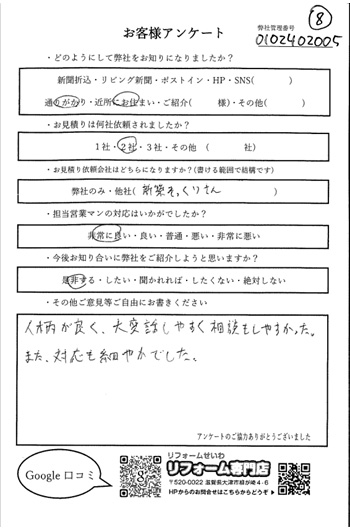 ⑧
弊社管理番号
0102402005
お客様アンケート
・どのようにして弊社をお知りになりましたか？
新聞折込・リビング新聞・ポストイン・HP・SNS(　　　)
通りがかり・近所にお住まい・ご紹介(　　　様)・その他(　　　)
・お見積りは何社依頼されましたか？
1社・2社・3社・その他（　　　社)
・お見積り依頼会社はどちらになりますか？(書ける範囲で結構です)
弊社のみ・他社( 新築そっくりさん )
・担当営業マンの対応はいかがでしたか？
非常に良い・良い・普通・悪い・非常に悪い
・今後お知り合いに弊社をご紹介しようと思いますか？
是非する・したい・聞かれれば・したくない・絶対しない
・その他ご意見等ご自由にお書きください
人柄が良く、大変話しやすく相談もしやすかった。
また、対応も細やかでした。
アンケートのご協力ありがとうございました
Google 口コミ
リフォームせいわ
リフォーム専門店
〒520-0022 滋賀県大津市柳が崎4-6
HPからのお問合せはこちらからどうぞ